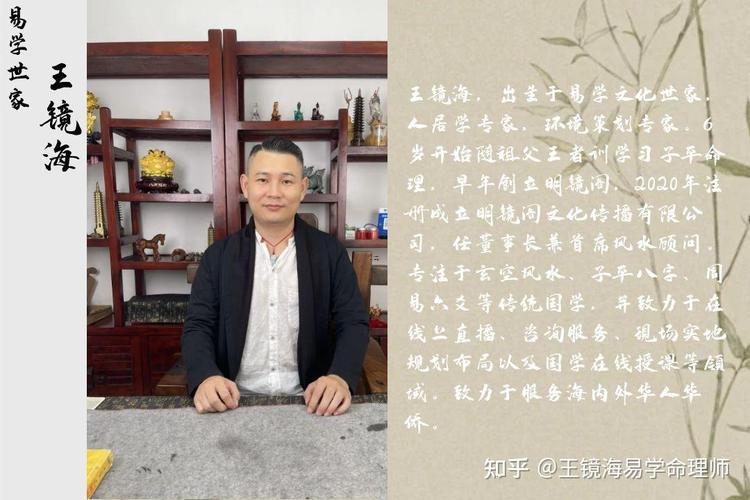 易学世家
王镜海
王镜海，出生于易学文化世家，
人居学专家，环境策划专家。6
岁开始随祖父王者训学习子平命
理，早年创立明镜阁，2020年注
册成立明镜阁文化传播有限公
司，任董事长兼首席风水顾问。
专注于玄空风水、子平八字、周
易六爻等传统国学，并致力于在
线上直播、咨询服务、现场实地
规划布局以及国学在线授课等领
域。致力于服务海内外华人华
侨。
知乎 @王镜海易学命理师